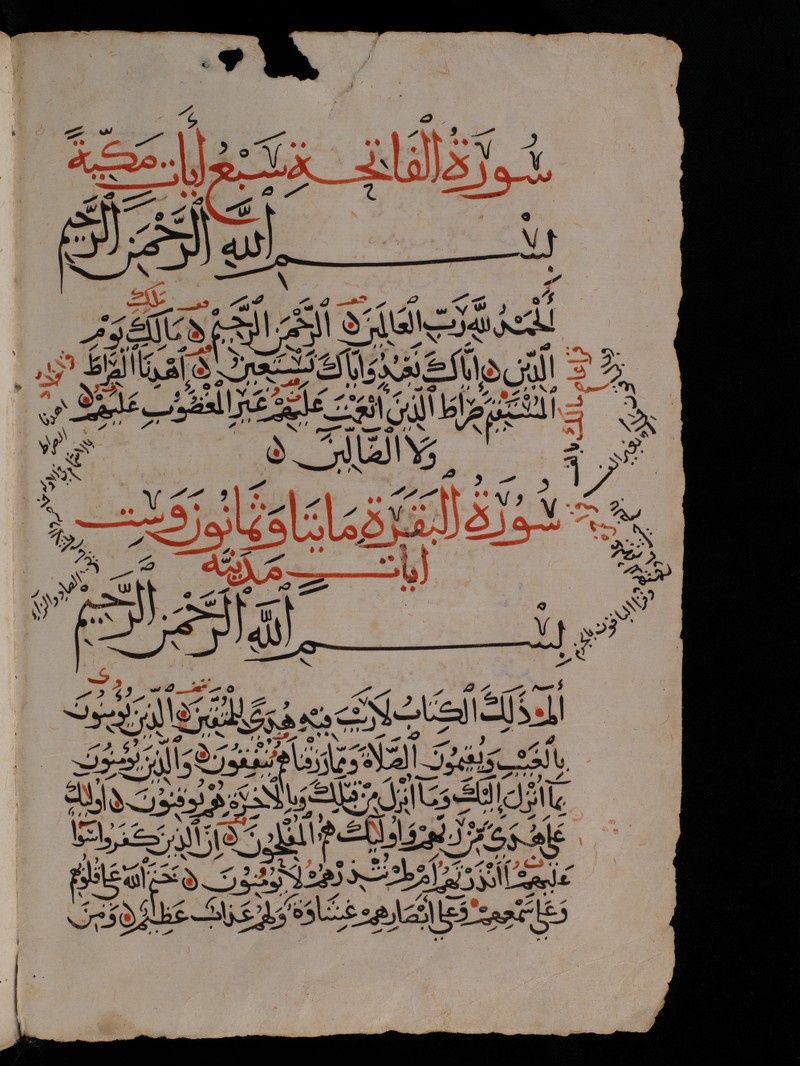 سُورَةُ الْفَاتِحَةِ سَبْعُ أَيَاتٍ مَكِّيَّةً
بِسْمِ اللَّهِ الرَّحْمَنِ الرَّحِيمِ
مَلِكِ
أَلْحَمْدُ لِلَّهِ رَبِّ الْعَالَمِينَ ۝ الرَّحْمَنِ الرَّحِيمِ ۝ مَالِكِ يَوْمِ
الدِّينِ ۝ إِيَّاكَ نَعْبُدُ وَإِيَّاكَ نَسْتَعِينُ ۝ اهْدِنَا الصِّرَاطَ
الْمُسْتَقِيمَ صِرَاطَ الَّذِينَ أَنْعَمْتَ عَلَيْهِمْ غَيْرِ الْمَغْضُوبِ عَلَيْهِمْ ۝
وَلَا الضَّالِّينَ ۝
سُورَةُ الْبَقَرَةِ مَايَتَا وَثَمَانُونَ وَسِت
ايَات مَدَنِيَّه
بِسْمِ اللَّهِ الرَّحْمَنِ الرَّحِيمِ
أَلٓمٓ ۝ ذَلِكَ الْكِتَابُ لَا رَيْبَ فِيهِ هُدًى لِلْمُتَّقِينَ ۝ الَّذِينَ يُؤْمِنُونَ
بِالْغَيْبِ وَيُقِيمُونَ الصَّلَاةَ وَمِمَّا رَزَقْنَاهُمْ يُنْفِقُونَ ۝ وَالَّذِينَ يُؤْمِنُونَ
بِمَا أُنْزِلَ إِلَيْكَ وَمَا أُنْزِلَ مِنْ قَبْلِكَ وَبِالْآخِرَةِ هُمْ يُوقِنُونَ ۝ أُولَئِكَ
عَلَى هُدًى مِنْ رَبِّهِمْ وَأُولَئِكَ هُمُ الْمُفْلِحُونَ ۝ إِنَّ الَّذِينَ كَفَرُوا سَوَآءٌ
عَلَيْهِمْ أَأَنْذَرْتَهُمْ أَمْ لَمْ تُنْذِرْهُمْ لَا يُؤْمِنُونَ ۝ خَتَمَ اللَّهُ عَلَى قُلُوبِهِمْ
وَعَلَى سَمْعِهِمْ وَعَلَى أَبْصَارِهِمْ غِشَاوَةٌ وَلَهُمْ عَذَابٌ عَظِيمٌ ۝ وَمِنَ
قرا عاصم مالك بالف
اهدنا
الصراط
وقرا الباقون بالجزم